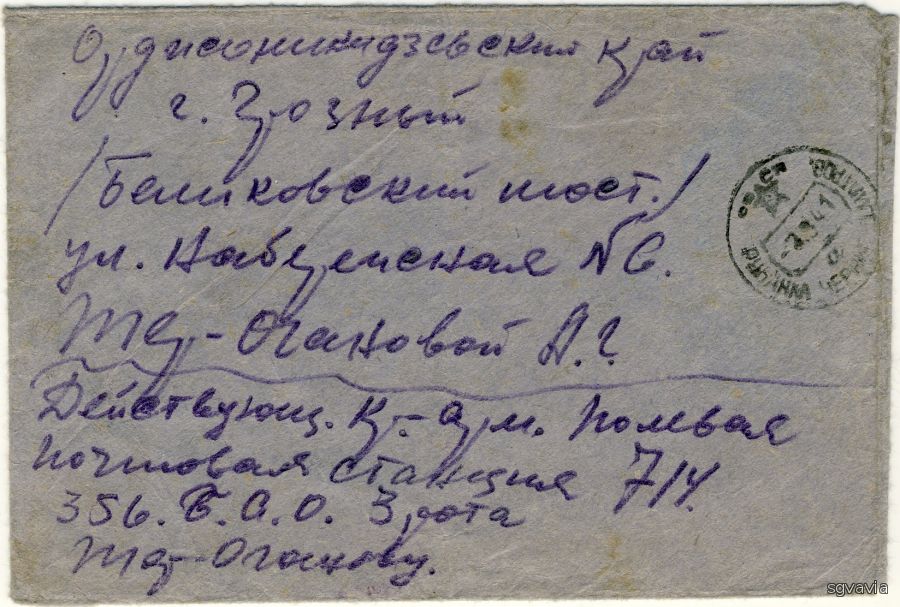 Орджоникидзевский край
г. Грозный
/Беликовский мост./
ул. Набережная №6.
Тер-Огановой А.Г.
Действующ. Кр.-арм. Полевая
почтовая станция 714.
356. Б.А.О. 3 рота
Тер-Оганову.
2 9 41
sgvavia